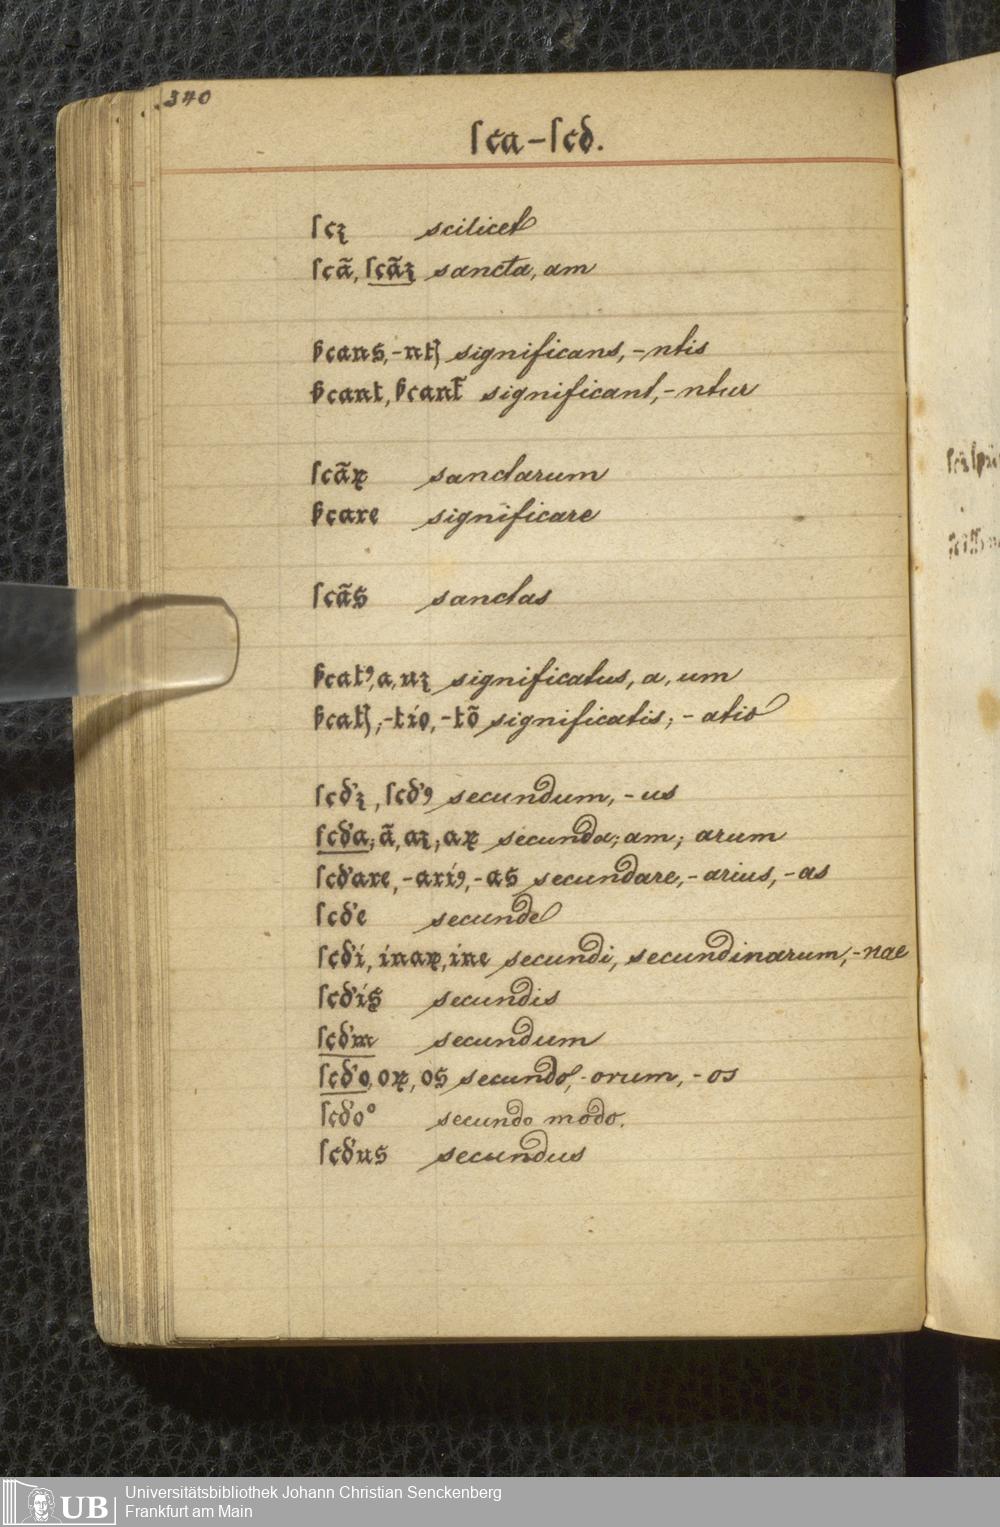 340
ſca – ſcd.
ſcꝫ scilicet
ſcā, ſcāꝫ sancta, am
ꝩcans, -ntꝭ significans, -ntis
ꝩcant, ꝩcant̃ significant, -ntur
ſcãꝝ sanctarum
ꝩcare significare
ſcãs sanctas
ꝩcatꝰ, a, uꝫ significatus, a, um
ꝩcatꝭ; -tio, -tõ significatis; - atio
ſcd'ꝫ, ſcd'ꝰ secundum, - us
ſcd'a; ã, aꝫ; aꝝ secunda; am; arum
ſcd'are, -ariꝰ, -as secundare, - arius, - as
ſcd'e secunde
ſcd'i, inaꝝ, ine secundi, secundinarum, - nae
ſcd'is secundis
ſcd'm secundum
ſcd'o, oꝝ, os secundo, - orum, - os
ſcd'o° secundo modo.
ſcd'us secundus
UB
Universitätsbibliothek Johann Christian Senckenberg
Frankfurt am Main